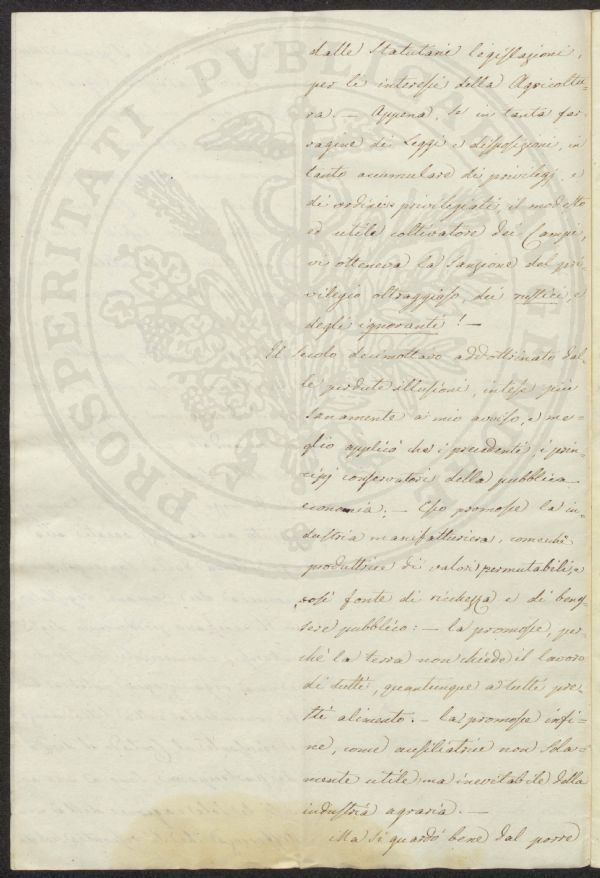 dalle Statutarie legislazioni,
per le interesse della Agricoltu=
ra. — Appena, se in tanta far=
ragine di Leggi e disposizioni, in
tanto accumulare di privilegj, e
di ordini privilegiati, il modesto
ed utile coltivatore dei Campi,
vi otteneva la Sanzione del pri=
vilegio oltraggioso, dei rustici, e
degli ignoranti! —
Il Secolo decimottavo addottrinato dal=
le perdute illusioni, intese più
sanamente a mio avviso, e me=
glio applicò che i precedenti, i prin=
cipj conservatori della pubblica
economia. — Esso promosse la in=
dustria manifatturiera, comechè
produttrice di valori permutabili, e
così fonte di ricchezza e di benes
sere pubblico: — la promosse, per=
chè la terra non chiede il lavoro
di tutti, quantunque a tutti pre=
sti alimento. — la promosse infi=
ne, come ausiliatrice non sola=
mente utile ma inevitabile della
industria agraria. —
Ma si guardò bene dal porre
PROSPERITATI PUBLICAE